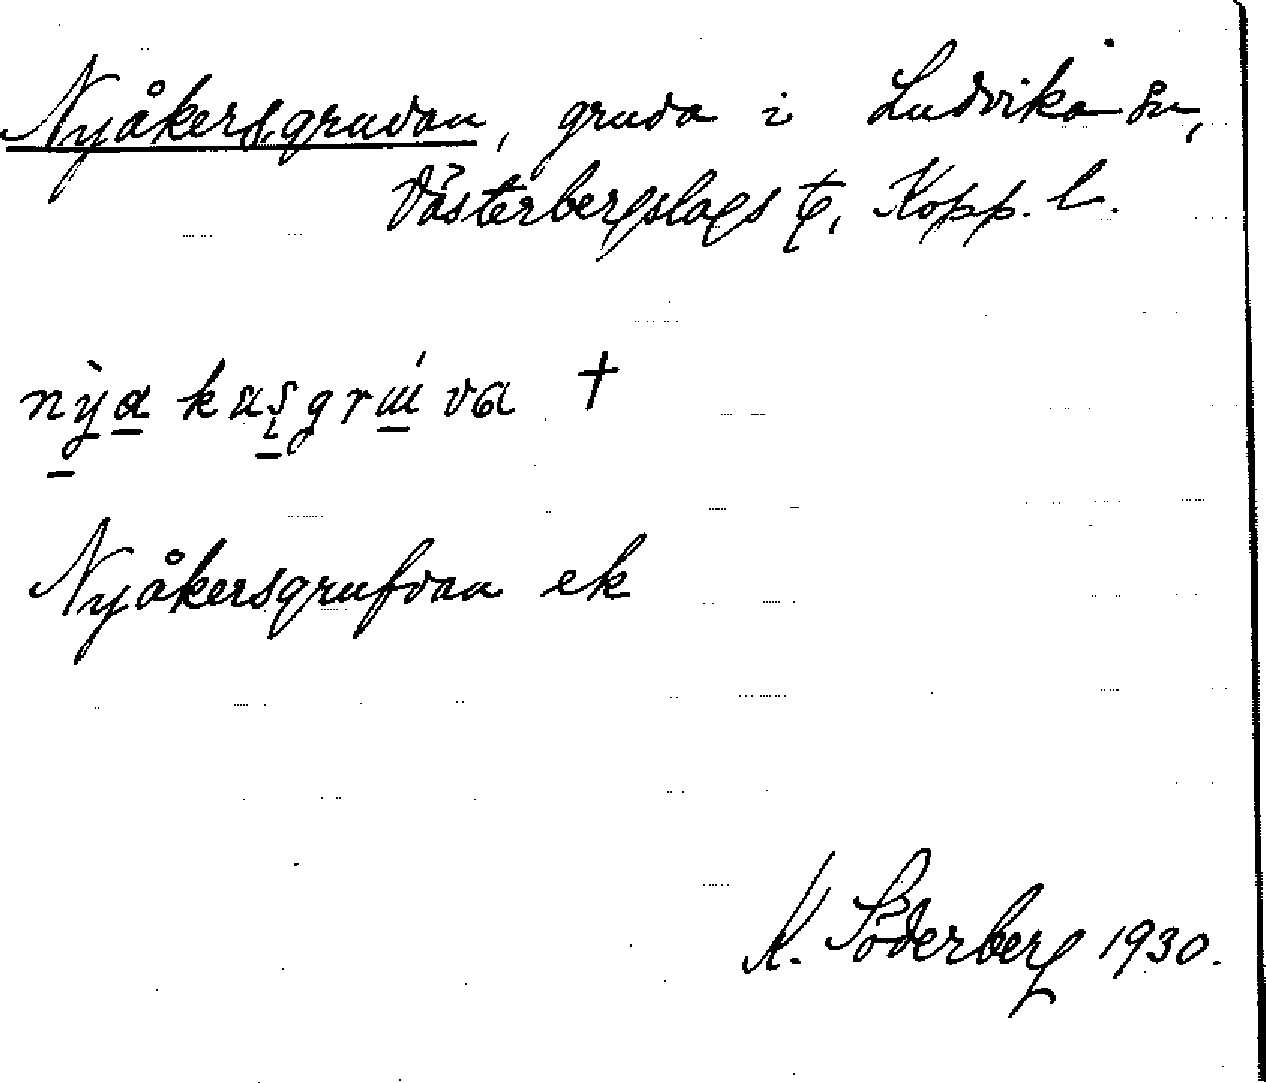 Nyåkersgruvan, gruva i Ludvika sn,
Västerbergslags tg, Kopp. l.
nỳa kuşgrú va †
Nyåkersgrufvan ek
K. Söderberg 1930.